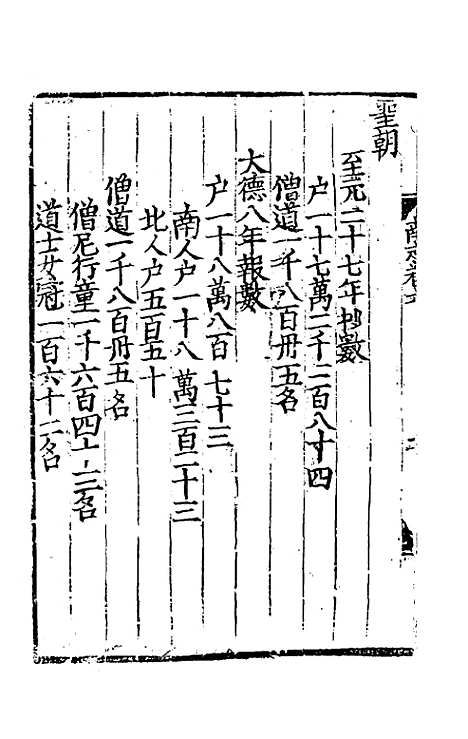 聖朝
至元二十七年抄數
户一十七萬二千二百八十四
僧道一千八百卅五名
大德八年報數
户一十八萬八百七十三
南人户一十八萬三百二十三
北人户五百五十
僧道一千八百卅五名
僧尼行童一千六百四十三名
道士女冠一百六十二名